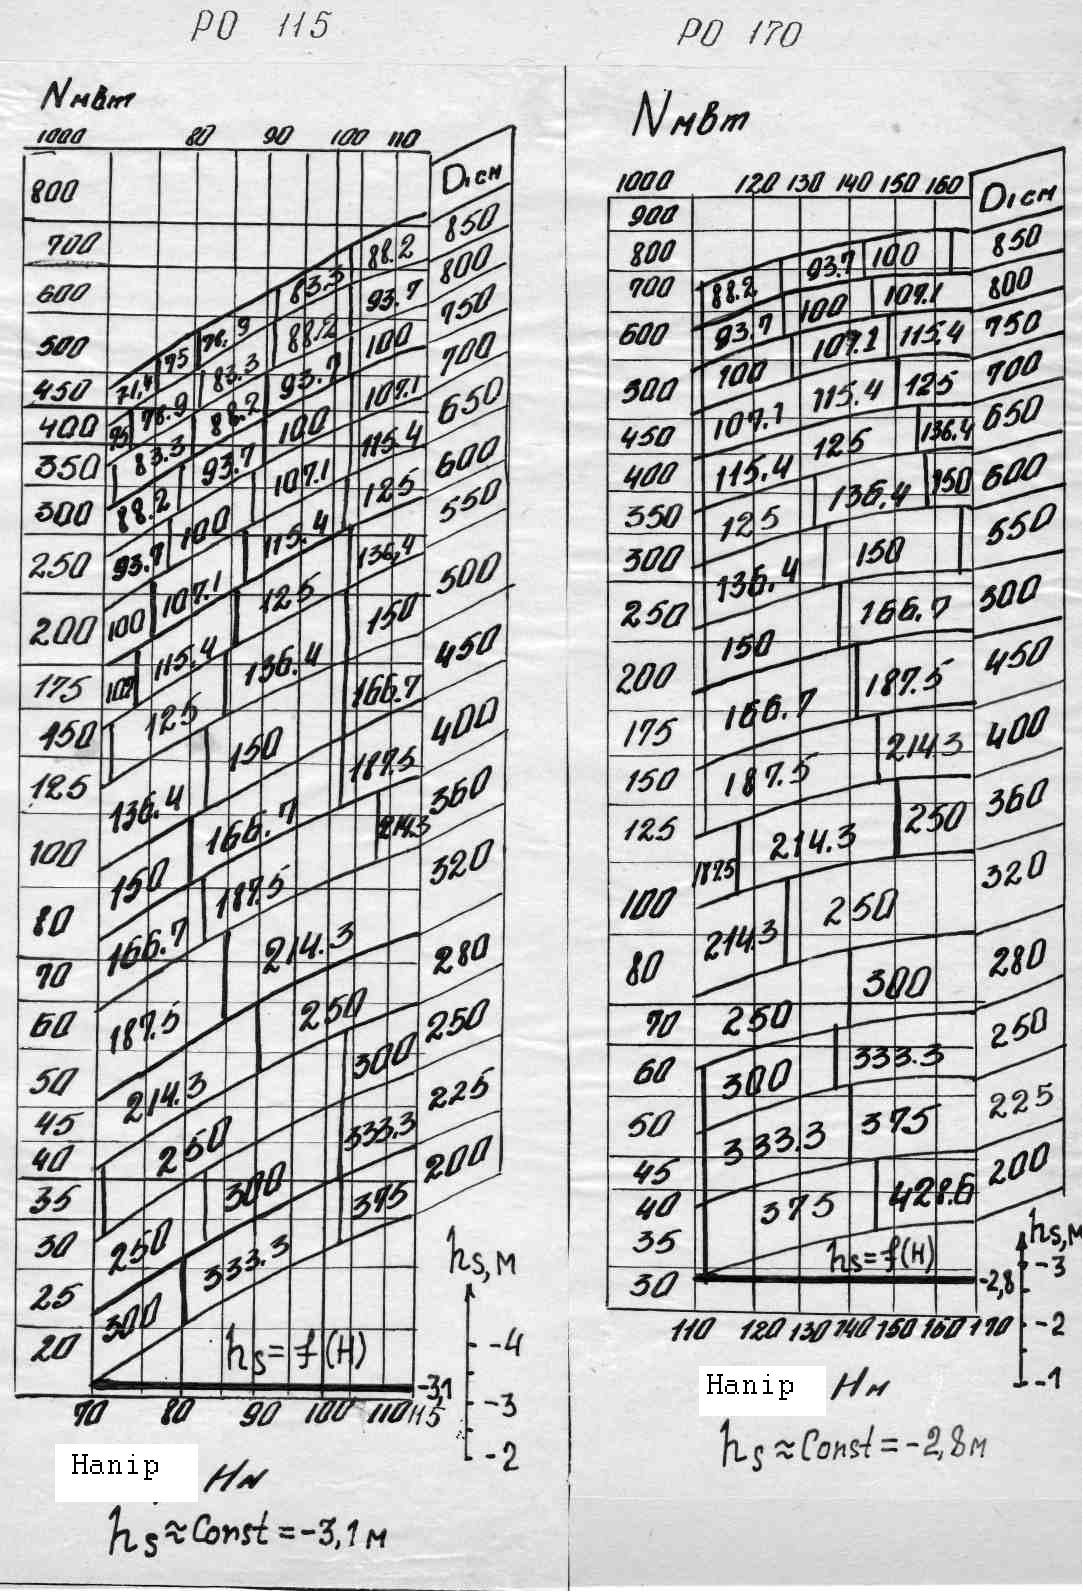 РО 115
Nмвт
1000 80 90 100 110
D₁см
800
700
600
500
450
400
350
300
250
200
175
150
125
100
80
70
60
50
45
40
35
30
25
20
850
800
750
700
650
600
550
500
450
400
360
320
280
250
225
200
71,4 75 78.9 83.3 88.2
75 78.9 83.3 88.2 93.7
83.3 88.2 93.7 100
88.2 93.7 100 107.1
93.7 100 107.1 115.4
100 107.1 115.4 125
107 115.4 125 136,4
125 136.4 150
136.4 150 166.7
150 166.7 187.5
166.7 187.5 214.3
187.5 214.3
214.3 250
250 300
250 300 333.3
300 333.3 375
hs = f(H)
hs, м
-4
-3
-2
-3,1
70 80 90 100 110 115
Hanip Hм
hs ≈ Const = -3,1 м
РО 170
Nмвт
1000 120 130 140 150 160
D₁см
900
800
700
600
500
450
400
350
300
250
200
175
150
125
100
80
70
60
50
45
40
35
30
850
800
750
700
650
600
550
500
450
400
360
320
280
250
225
200
88.2 93.7 100
93.7 100 107.1
100 107.1 115.4
107.1 115.4 125
115.4 125 136.4
125 136.4 150
136.4 150
150 166.7
166.7 187.5
187.5 214.3
187.5 214.3 250
214.3 250
250 300
300 333.3
333.3 375
375 428.6
hs = f(H)
hs, м
-3
-2
-1
-2,8
110 120 130 140 150 160 170
Hanip Hм
hs ≈ Const = -2,8 м